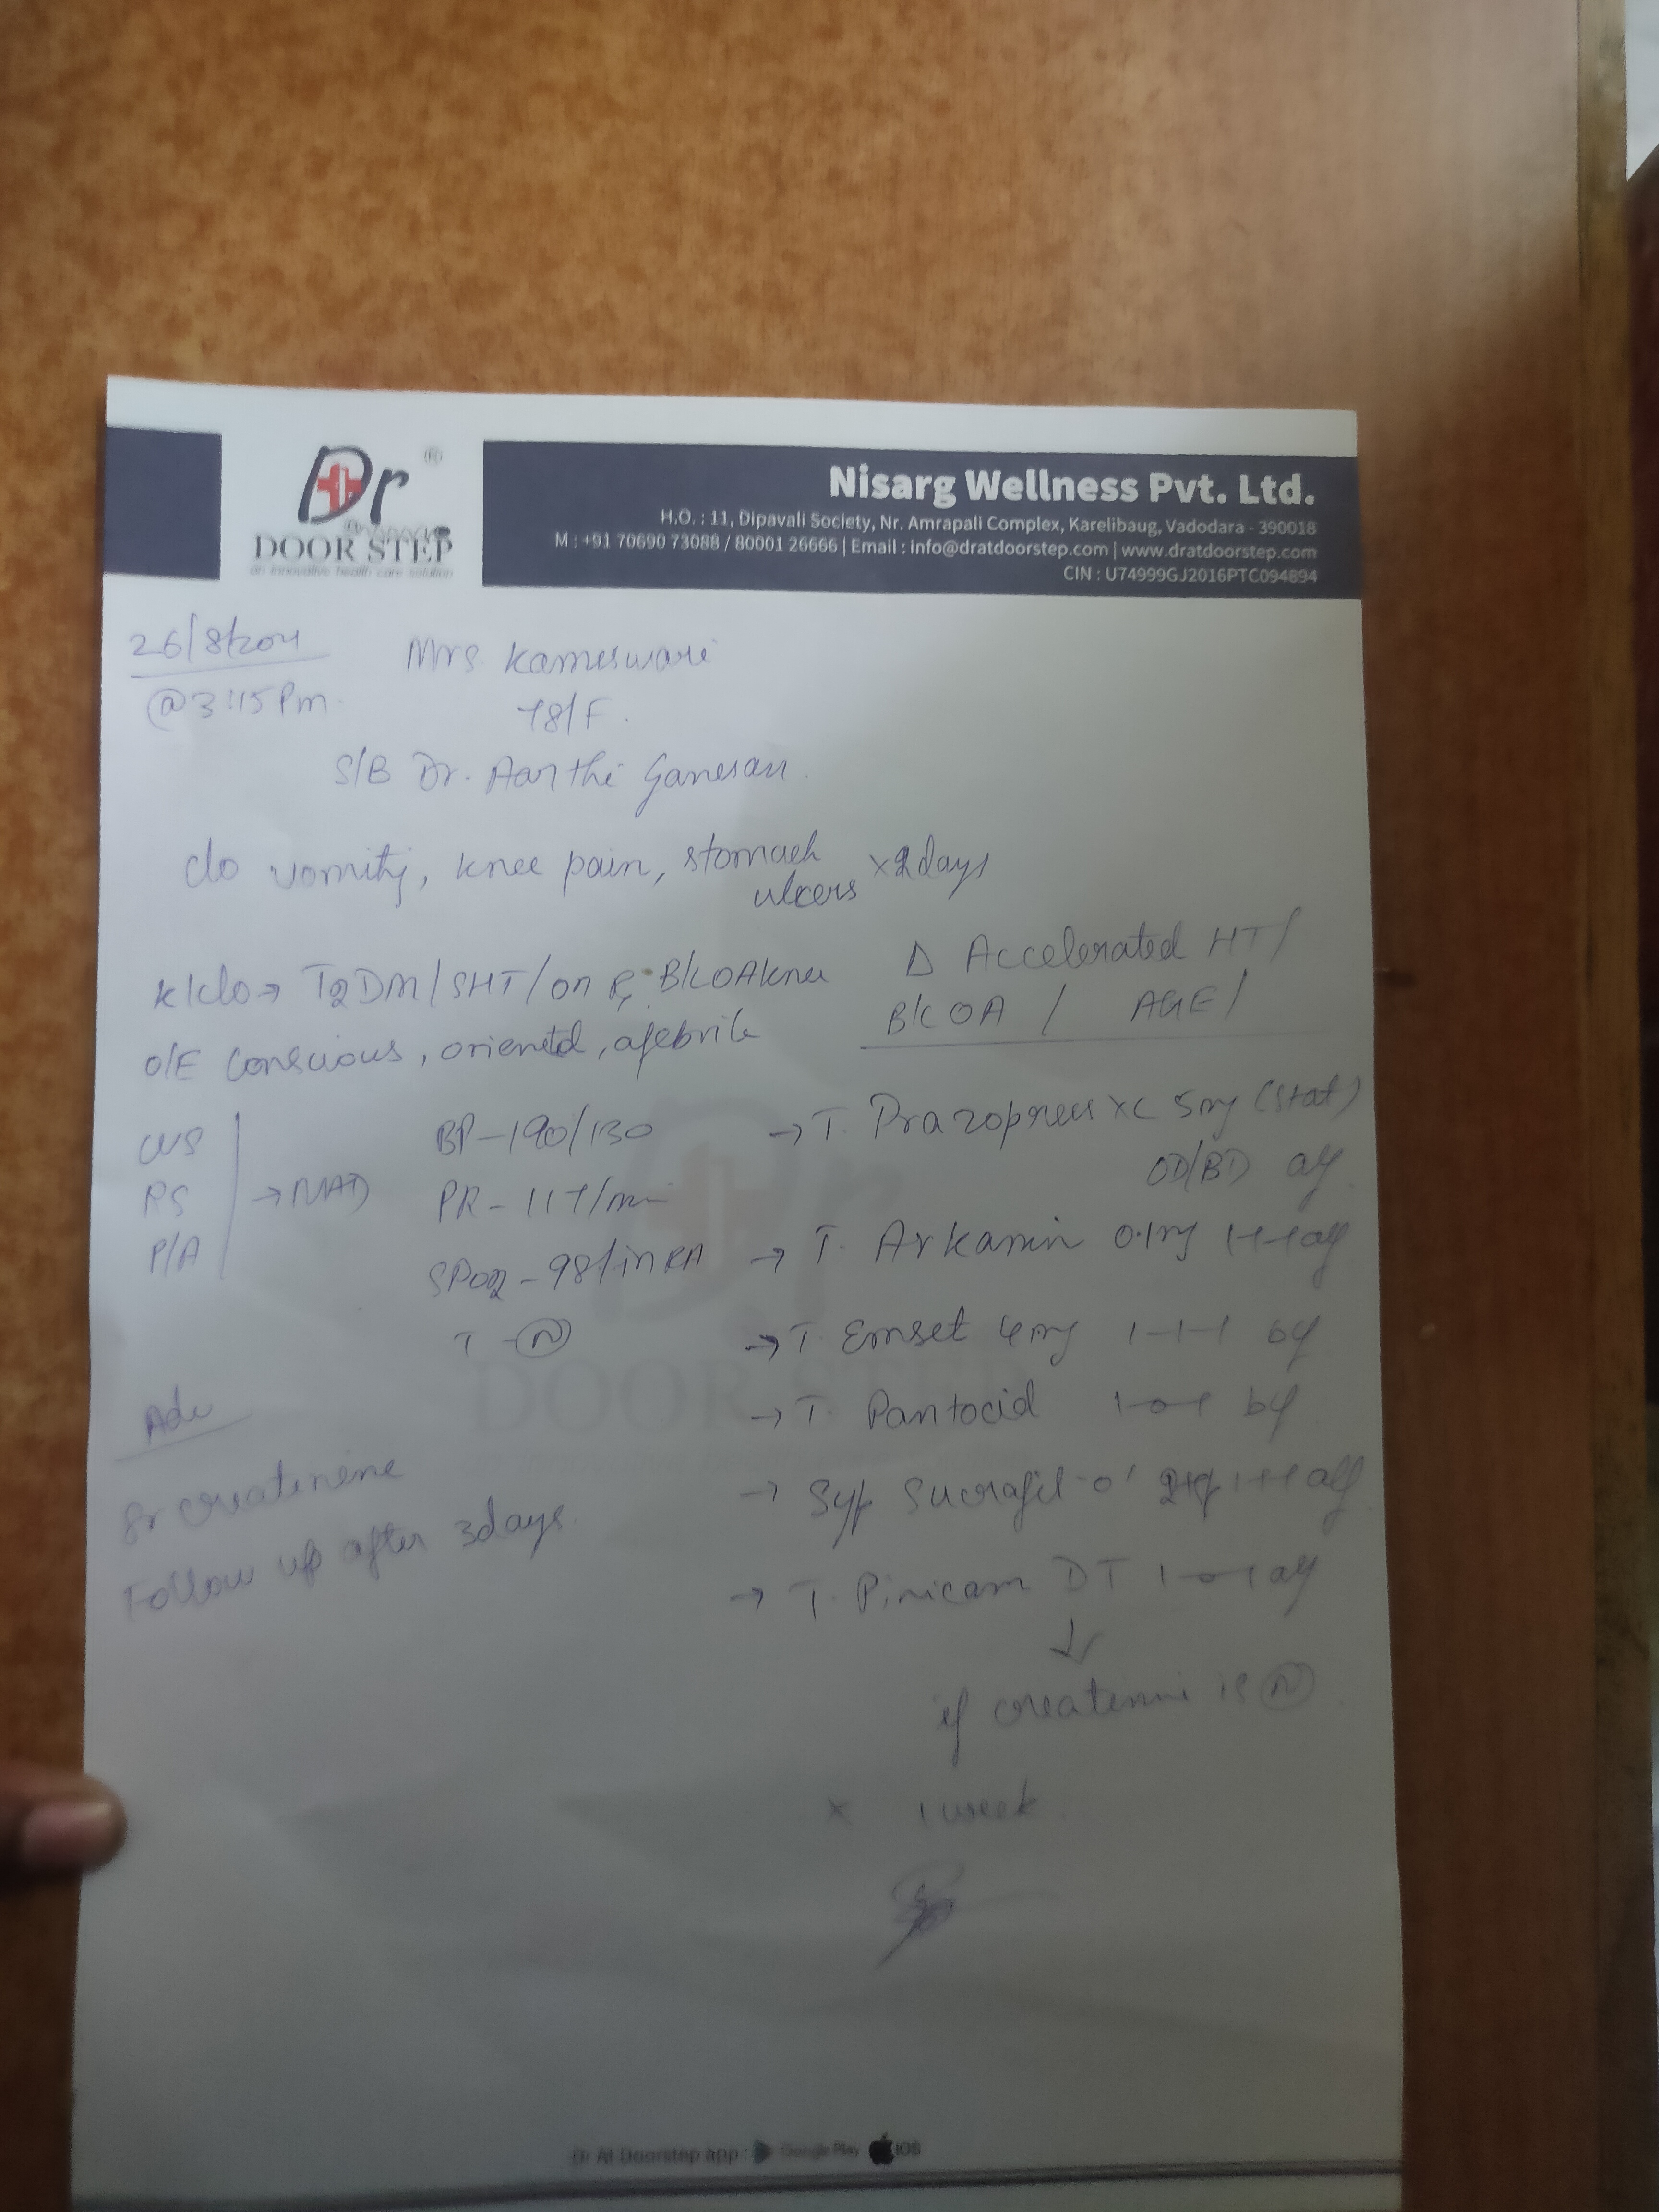 Dr ®
DOOR STEP
an innovative health care solution
Nisarg Wellness Pvt. Ltd.
H.O. : 11, Dipavali Society, Nr. Amrapali Complex, Karelibaug, Vadodara - 390018
M : +91 70690 73088 / 80001 26666 | Email : info@dratdoorstep.com | www.dratdoorstep.com
CIN : U74999GJ2016PTC094894
Mrs. Kameswari
@3:15 Pm.
78/F.
S/B Dr. Aarthi Ganesan.
c/o vomity, knee pain, stomach ulcers x 2 days
k/c/o → T2DM/SHT/on Rx B/L OA knee
Δ Accelerated HT/
B/L OA / AGE/
O/E Conscious, oriented, afebrile
CVS
RS → NAD
P/A
BP - 190/130
PR - 117/min
SPO2 - 98% in RA
T - (N)
→ T. Prazopress XL 5mg (stat)
OD/BD af
→ T. Arkamin 0.1mg 1-1-1 af
→ T. Emset 4mg 1-1-1 bf
→ T. Pantocid 1-0-1 bf
→ Syp Sucrafil-O 1-1-1 af
→ T. Piricam DT 1-0-1 af
↓
if creatinine is (N)
x 1 week.
Adv
Sr creatinine
Follow up after 3 days.
DOOR STEP
Dr At Doorstep app : Google Play iOS